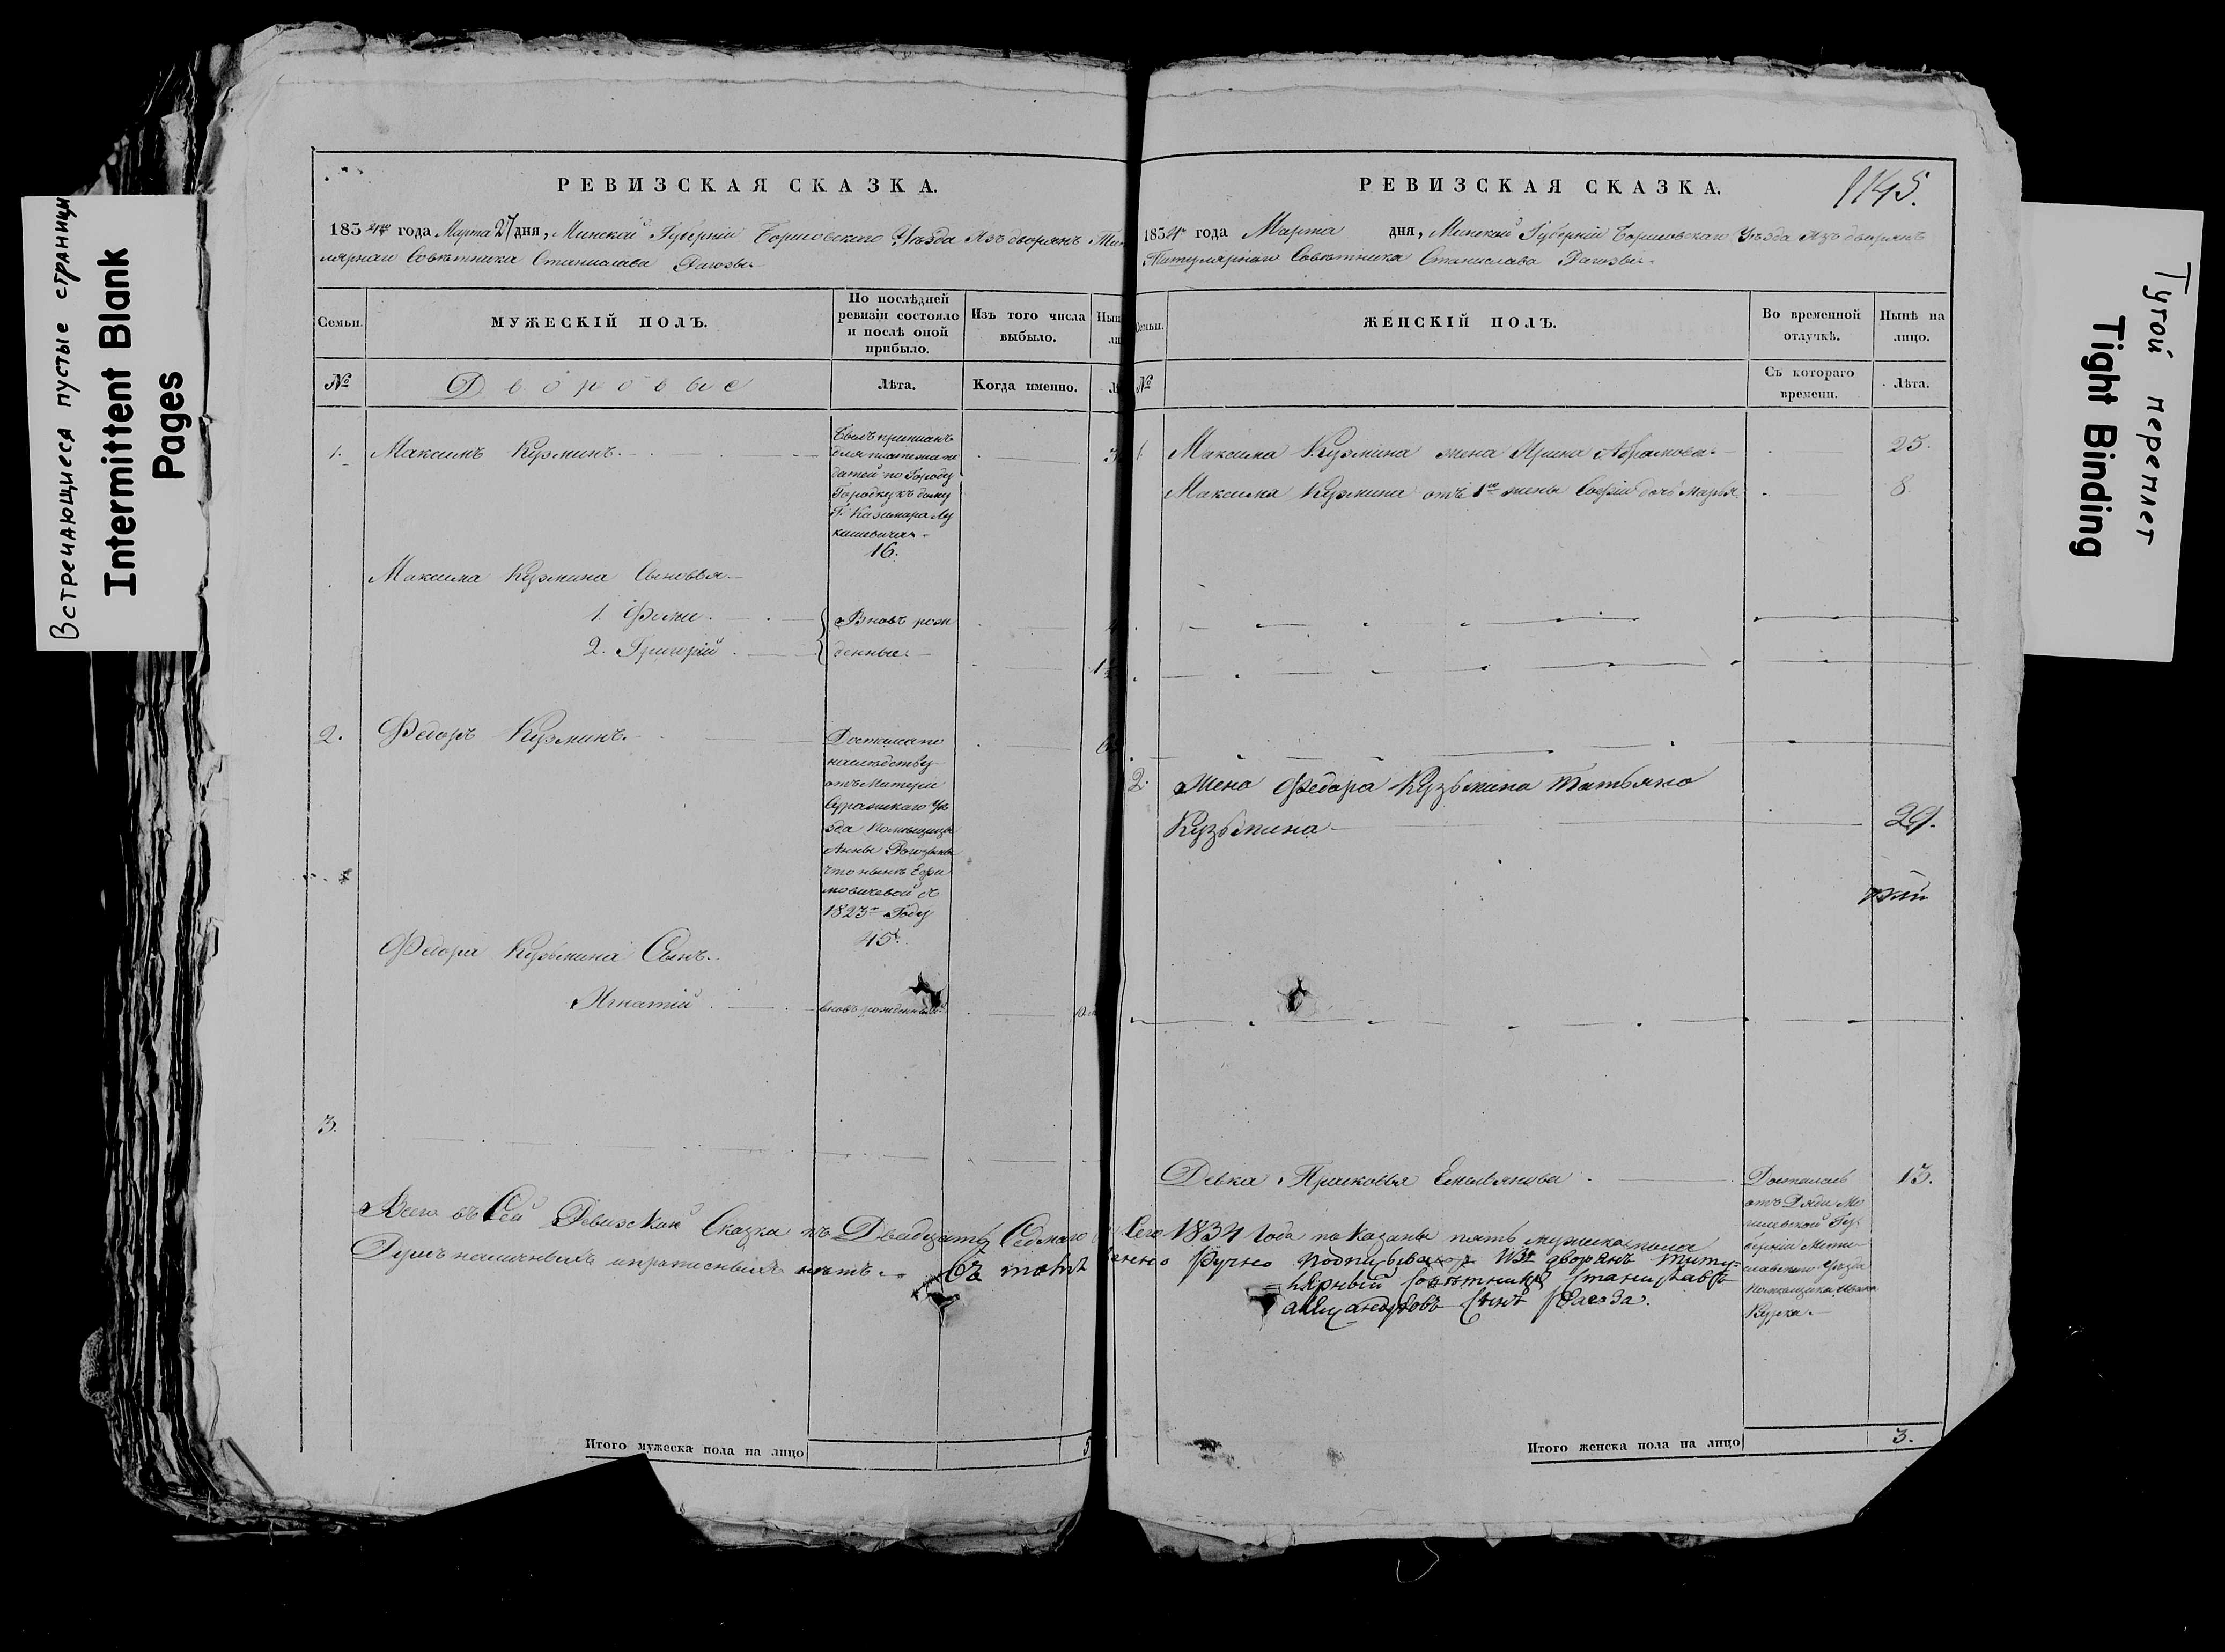 Встречающиеся пустые страницы
Intermittent Blank
Pages
РЕВИЗСКАЯ СКАЗКА.
1834го года Марта 27 дня, Минской Губерніи Борисовского Уѣзда Изъ дворянъ
лярнаго Совѣтника Станислава Рагозы
Семьи.
МУЖЕСКІЙ ПОЛЪ.
По послѣдней
ревизіи состояло
и послѣ оной
прибыло.
Изъ того числа
выбыло.
№
Дворовые
Лѣта.
Когда именно.
1.
Максимъ Кузминъ.
Былъ приписанъ
для платежа по
датей по Городу
Городку къ дому
Г. Казимира Лу
кашевича
16.
Максима Кузмина Сыновья
1.
2. Григорій
Вновь рож
денные.
2.
Федоръ Кузминъ.
Достался по
наслѣдству
отъ Матери
Суражскаго Уѣ
зда Помѣщицы
Анны
что нынѣ
1823го Году
45.
Федора Кузьмина Сынъ.
Игнатій
вновь рожденный
3.
Всего въ Сей Ревизской Сказка къ Двадцать Седмаго
Душъ написанныхъ нѣтъ. Въ томъ
Итого мужеска пола на лицо
5
РЕВИЗСКАЯ СКАЗКА.
1145.
1834го года Марта дня, Минской Губерніи Борисовскаго Уѣзда Изъ дворянъ
Титулярнаго Совѣтника Станислава Рагозы
Семьи.
ЖЕНСКІЙ ПОЛЪ.
Во временной
отлучкѣ.
Нынѣ на
лицо.
№
Съ котораго
времени.
Лѣта.
1.
Максима Кузмина жена Ирина Абрамова
25.
Максима Кузмина отъ 1ой жены Софіи дочь Марья
8.
2.
Жена Федора Кузьмина Татьяна
Кузьмина
29.
Девка Прасковья Емельянова
Досталась
отъ Дяди Мо
гилевской Гу
берніи Мсти
славскаго Уѣзда
Помѣщика Ивана
13.
Сего 1834 Года показаны пять мужеска пола
Ручно подписываюсь изъ дворянъ титу=
=лярный совѣтникъ Станиславъ
сынъ Рагоза.
Итого женска пола на лицо
3.
Тугой переплет
Tight Binding